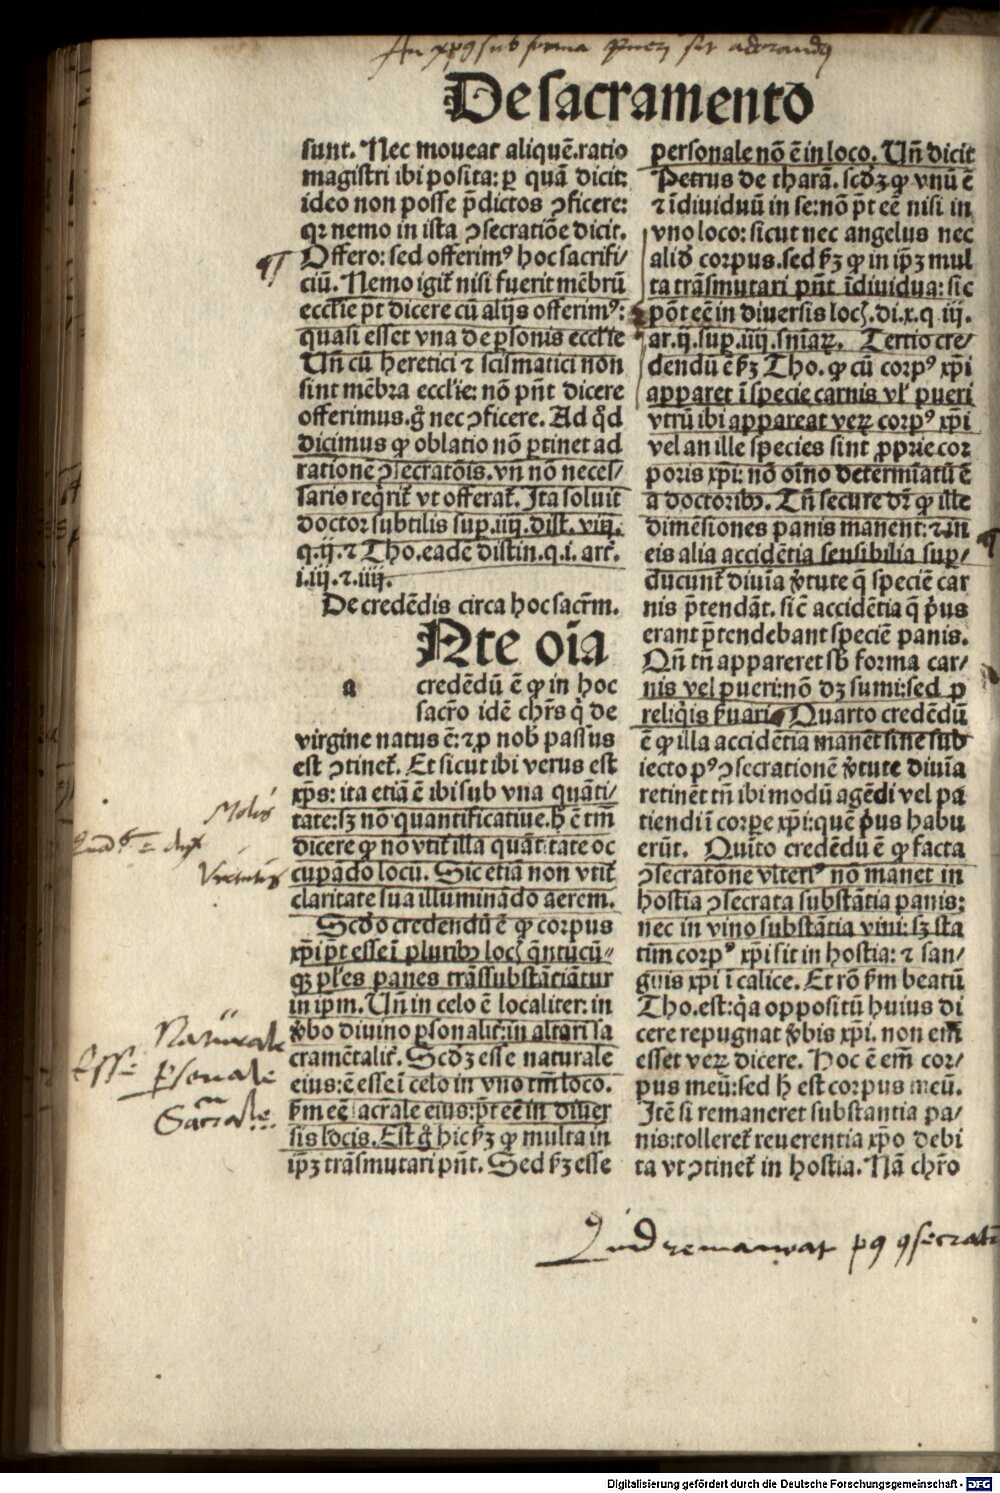 An xpꝰ sub forma pueri sit adorandꝰ
De sacramento
sunt. Nec moueat aliquē.ratio
magistri ibi posita: ꝑ quā dicit:
ideo non posse p̄dictos ꝯficere:
qꝛ nemo in ista ꝯsecratiōe dicit.
Offero: sed offerimꝰ hoc sacrifi/
ciū. Nemo igit᷑ nisi fuerit mēbrū
eccl̄ie p̄t dicere cū alijs offerimꝰ:
quasi esset vna de ꝑsonis eccl̄ie
Un̄ cū heretici ⁊ scismatici non
sint mēbra eccl̄ie: nō pn̄t dicere
offerimus.g̊ nec ꝯficere. Ad qd̄
dicimus ꝙ oblatio nō ꝑtinet ad
rationē ꝯsecratōis. vn̄ nō neces/
sario reqrit᷑ vt offerat᷑. Ita soluit
doctor subtilis sup.iiij.dist. viij.
q.ij.⁊ Tho.eadē distin.q.i. art̄.
i.iij.⁊.iiij.
De credēdis circa hoc sacr̄m.
Nte oīa
a credēdū ē ꝙ in hoc
sacr̄o idē chr̄s q̇ de
virgine natus ē: ⁊ ꝓ nob̄ passus
est ꝯtinet᷑. Et sicut ibi verus est
xp̄s: ita etiā ē ibi sub vna quāti/
tate: sꝫ nō quantificatiue. h̄ ē tm̄
dicere ꝙ nō vtit᷑ illa quātitate oc
cupādo locū. Sic etiā non vtit᷑
claritate sua illuminādo aerem.
Scd̄o credendū ē ꝙ corpus
xp̄i p̄t esse ī pluribꝰ locꝭ q̄ntūcū-
qꝫ pl̄es panes trāssubstātiātur
in ip̄m. Un̄ in celo ē localiter: in
v̄bo diuino ꝑsonalit᷑: in altari sa
cramētalit᷑. Scd̄ꝫ esse naturale
eius: ē esse ī celo in vno tm̄ loco.
km̄ eē sacr̄ale eius: p̄t eē in diuer
sis locis. Est g̊ hic kꝫ ꝙ multa in
ip̄ꝫ trāsmutari pn̄t. Sed kꝫ esse
personale nō ē in loco. Un̄ dicit
Petrus de tharā. scd̄ꝫ ꝙ vnū ē
⁊ īdiuiduū in se: nō p̄t eē nisi in
vno loco: sicut nec angelus nec
aliud̄ corpus. sed kꝫ ꝙ in ip̄ꝫ mul
ta trāsmutari pn̄t īdiuidua: sic
pōt eē in diuersis locꝭ.di.x.q iij.
ar.ij.sup.iiij.sniaꝝ. Tertio cre/
dendū ē kꝫ Tho. ꝙ cū corpꝰ xp̄i
apparet ī specie carnis vl̓ pueri
vtrū ibi appareat veꝝ corpꝰ xp̄i
vel an ille species sint ꝓprie cor
poris xp̄i: nō oīno determīatū ē
a doctoribꝰ. Tn̄ secure dr̄ ꝙ ille
dimēsiones panis manent: ⁊ in
eis alia accidētia sensibilia sup/
ducunt᷑ diuīa v̄tute q̄ speciē car
nis p̄tendāt. sic̄ accidētia q̄ pͥus
erant p̄tendebant speciē panis.
Qn̄ tn̄ appareret sb̄ forma car/
nis vel pueri: nō dꝫ sumi: sed ꝓ
reliq̇is k̄uari. Quarto credēdū
ē ꝙ illa accidētia manēt sine sub
iecto pꝰ ꝯsecrationē v̄tute diuīa
retinēt tn̄ ibi modū agēdi vel pa
tiendi ī corꝑe xp̄i: quē pͥus habu
erūt. Quīto credēdū ē ꝙ facta
ꝯsecratōne vlteriꝰ nō manet in
hostia ꝯsecrata substātia panis:
nec in vino substātia vini: sꝫ sta
tim corpꝰ xp̄i sit in hostia: ⁊ san/
guis xp̄i ī calice. Et rō km̄ beatū
Tho.est: q̇a oppositū huius di
cere repugnat v̄bis xp̄i. non em̄
esset veꝝ dicere. Hoc ē em̄ cor/
pus meū: sed h̄ est corpus meū.
Itē si remaneret substantia pa/
nis: tolleret᷑ reuerentia xp̄o debi
ta vt ꝯtinet᷑ in hostia. Nā chr̄o
Molis
Virtutis
Naturale
Esse ꝑsonale
Sacr̄ale
Quid remaneat pꝰ ꝯsecratō
Digitalisierung gefördert durch die Deutsche Forschungsgemeinschaft - DFG